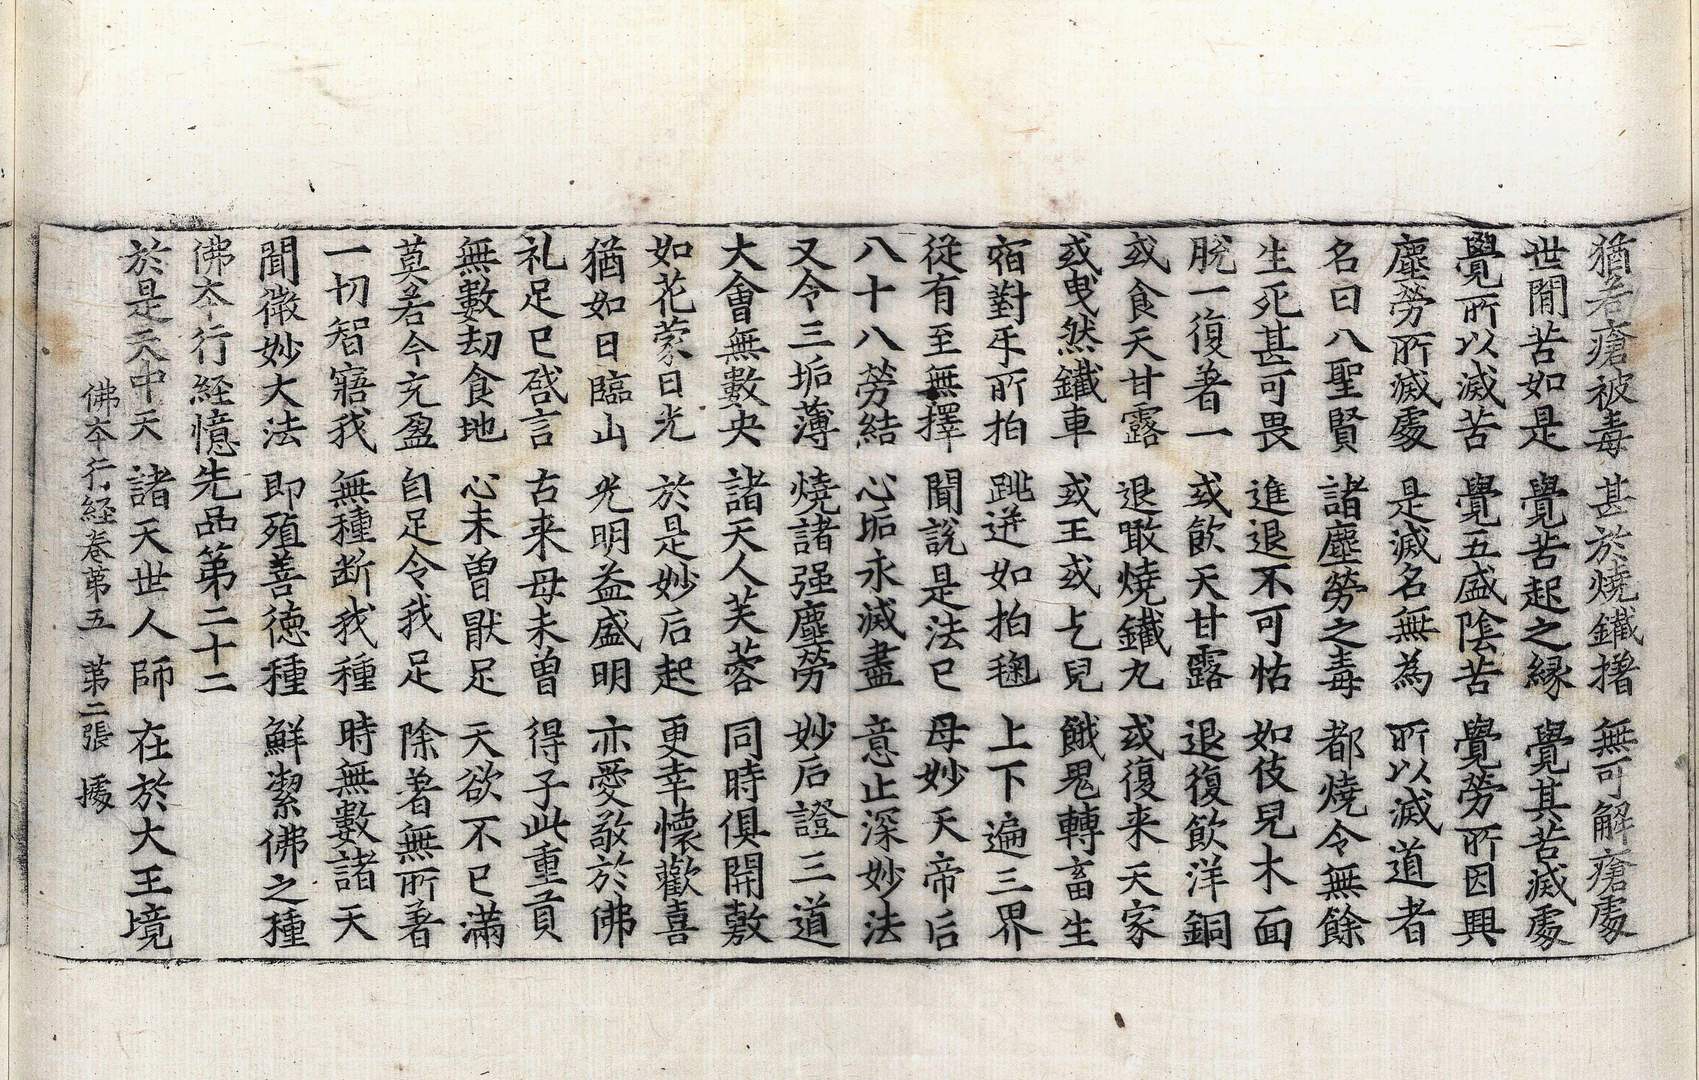 猶若瘡被毒 甚於燒鐵撍 無可解瘡處
世間苦如是 覺苦起之縁 覺其苦滅處
覺所以滅苦 覺五盛陰苦 覺勞所因興
塵勞所滅處 是滅名無為 所以滅道者
名曰八聖賢 諸塵勞之毒 都燒令無餘
生死甚可畏 進退不可怙 如伎兒木面
脫一復著一 或飲天甘露 退復飲洋銅
或食天甘露 退噉燒鐵丸 或復来天家
或曳然鐵車 或王或乞兒 餓鬼轉畜生
宿對手所拍 跳迸如拍毱 上下遍三界
從有至無擇 聞說是法已 母妙天帝后
八十八勞結 心垢永滅盡 意止深妙法
又令三垢薄 燒諸强塵勞 妙后證三道
大會無數央 諸天人芙蓉 同時俱開敷
如花蒙日光 於是妙后起 更幸懷歡喜
猶如日臨山 光明益盛明 亦愛敬於佛
礼足已啓言 古来母未曾 得子此重貢
無數劫食地 心未曾猒足 天欲不已滿
莫若今充盈 自足令我足 除著無所著
一切智寤我 無種断我種 時無數諸天
聞微妙大法 即殖善德種 鮮潔佛之種
佛夲行経憶先品第二十二
於是天中天 諸天世人師 在於大王境
佛夲行経卷第五 第二張 據